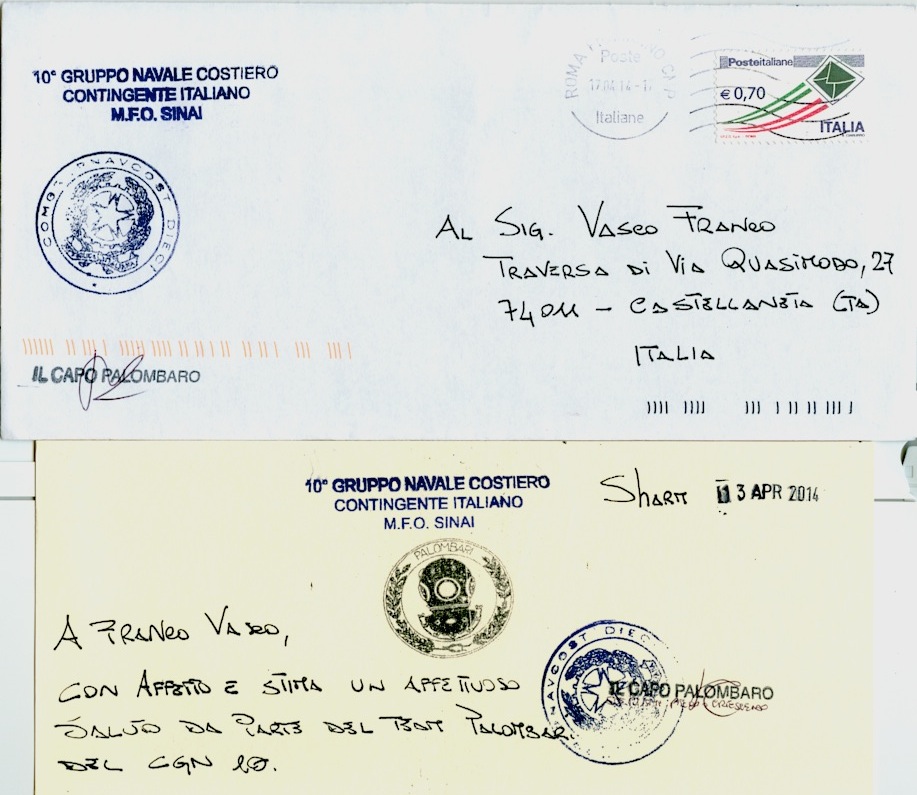 10° GRUPPO NAVALE COSTIERO
CONTINGENTE ITALIANO
M.F.O. SINAI
Poste
17.04.14
Italiane
Posteitaliane
€ 0,70
ITALIA
DIECI
AL SIG. VASCO FRANCO
TRAVERSA DI VIA QUASIMODO, 27
74011 - CASTELLANETA (TA)
ITALIA
IL CAPO PALOMBARO
10° GRUPPO NAVALE COSTIERO
CONTINGENTE ITALIANO
M.F.O. SINAI
SHARM 13 APR 2014
PALOMBARI
A FRANCO VASCO,
CON AFFETTO E STIMA UN AFFETTUOSO
SALUTO DA PARTE DEL TEAM PALOMBARI
DEL CGN 10.
IL CAPO PALOMBARO